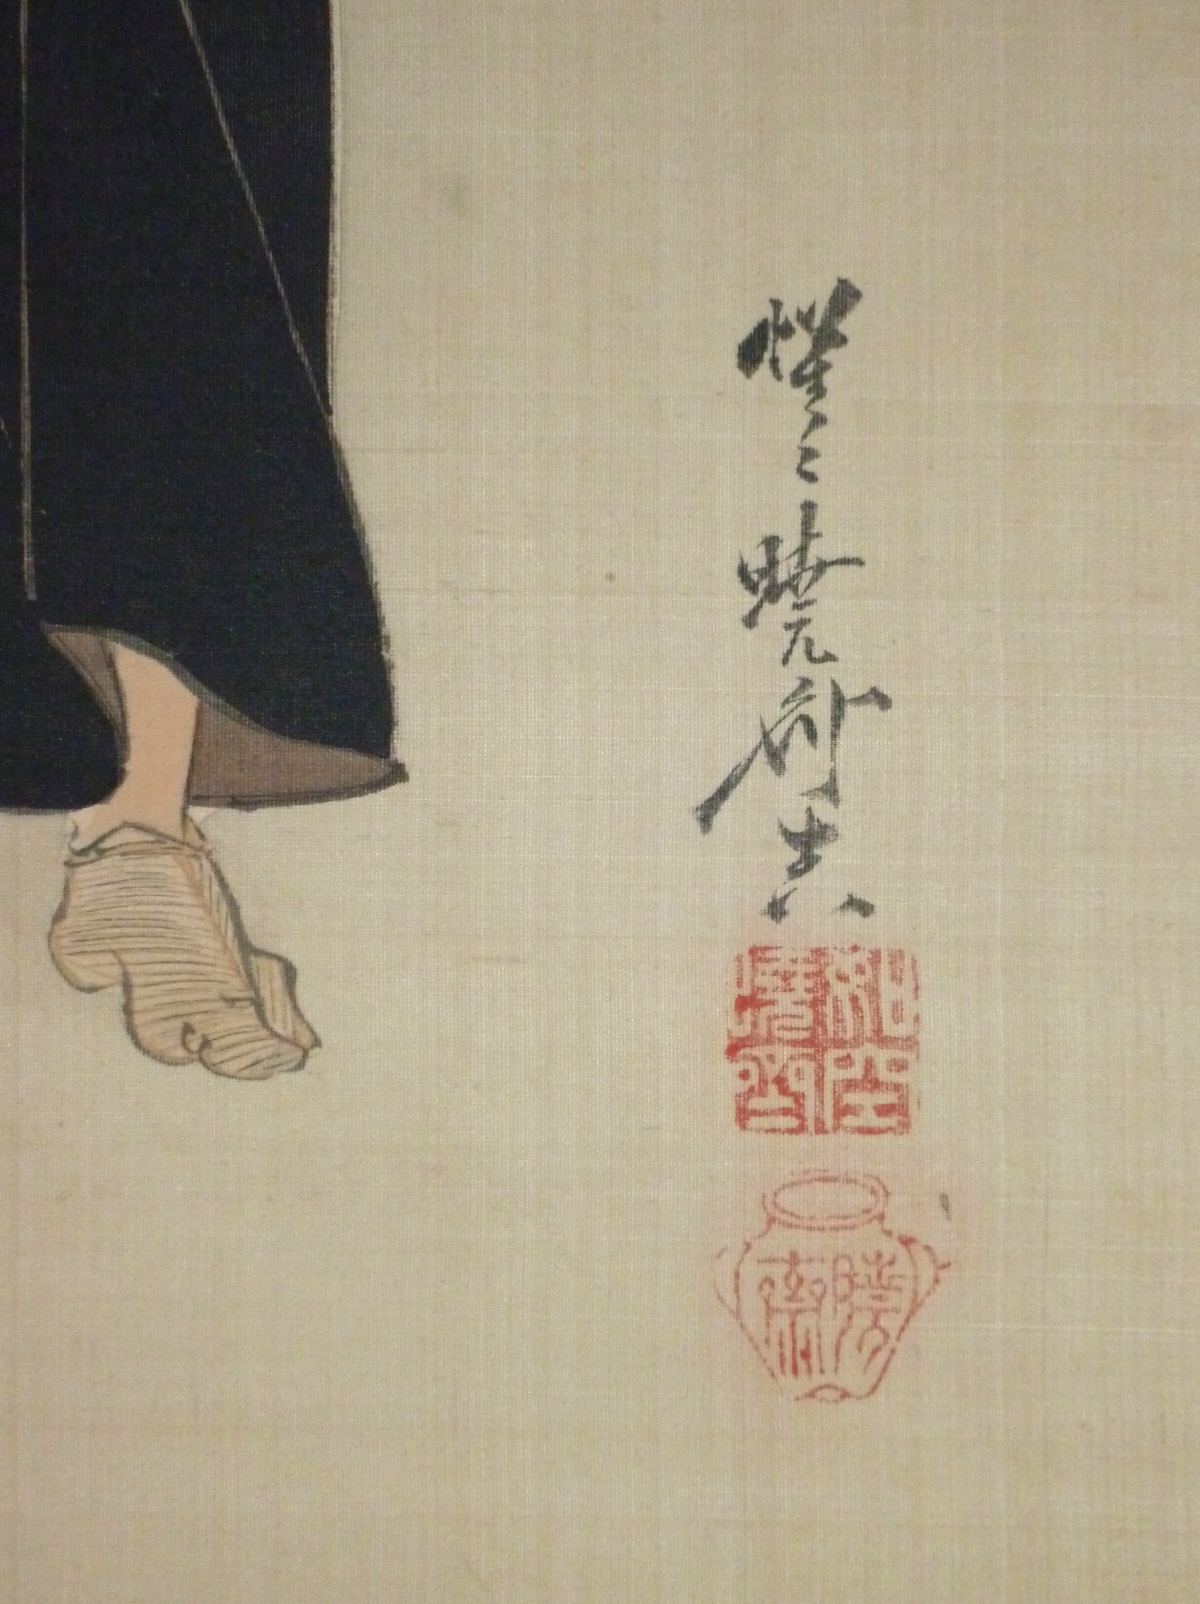 惺々暁斎
暁斎